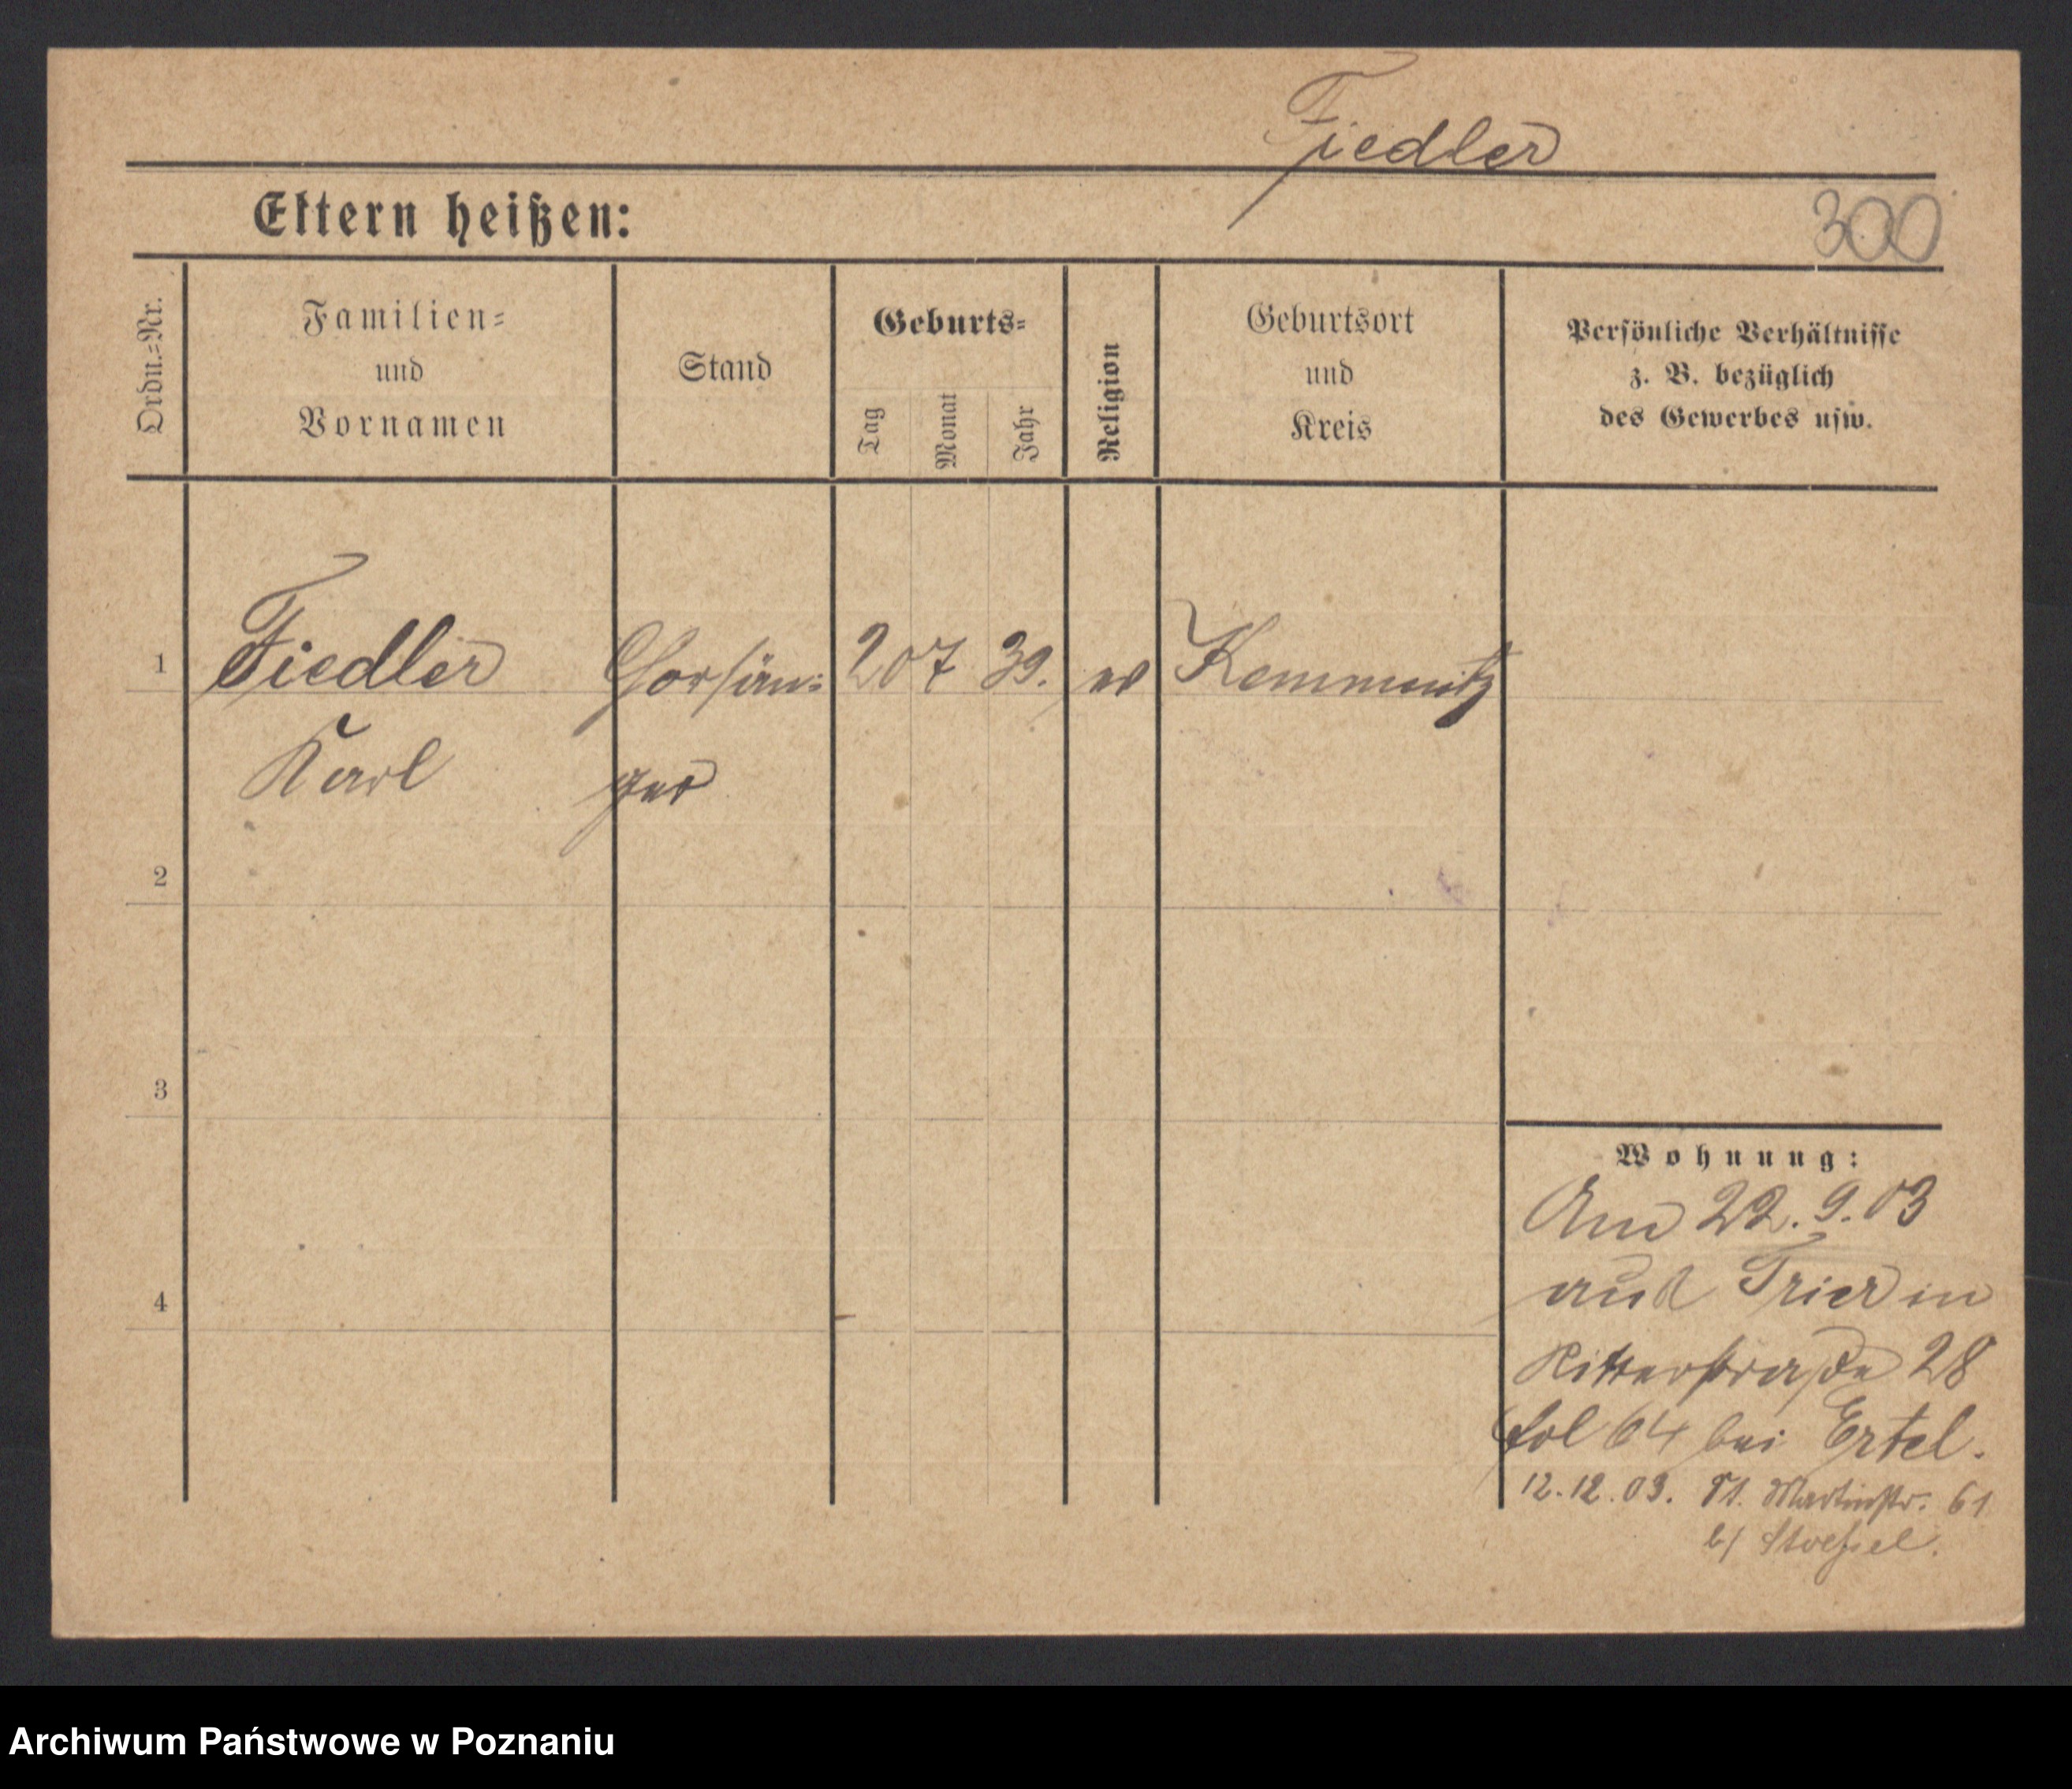 Fiedler
Eltern heißen:
300
Ordn.=Nr.
Familien=
und
Vornamen
Stand
Geburts=
Tag
Monat
Jahr
Religion
Geburtsort
und
Kreis
Persönliche Verhältnisse
z. B. bezüglich
des Gewerbes usw.
1 Fiedler Chorsän= 20 7 39. ev Kemmnitz
Karl ger
2
3
4
Wohnung:
Am 22.9.03
aus Trier in
Ritterstraße 28
fol 64 bei Ertel.
12.12.03. St. Martinstr. 61
b/ Stoessel.
Archiwum Państwowe w Poznaniu